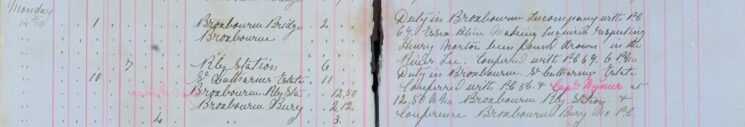 Monday
14th 1 Broxbourne Bridge 2 Duty in Broxbourne Incompany with P.C
Broxbourne 69. Essex Making Inquiries respecting
Henry Morton been found drown in the
7 Rly Station 6 River Lee. Conferred with P.C 69. 6 P.M
10 St Catharines Estate. 11 Duty in Broxbourne. St Catharines Estate
Conferred with P.C 56. & Capt Wymer at
Broxbourne Rly Sta. 12.50 12,50 Broxbourne Rly Station &
Broxbourne Bury 2.12 Conference Broxbourne Bury No P.C.
4 3